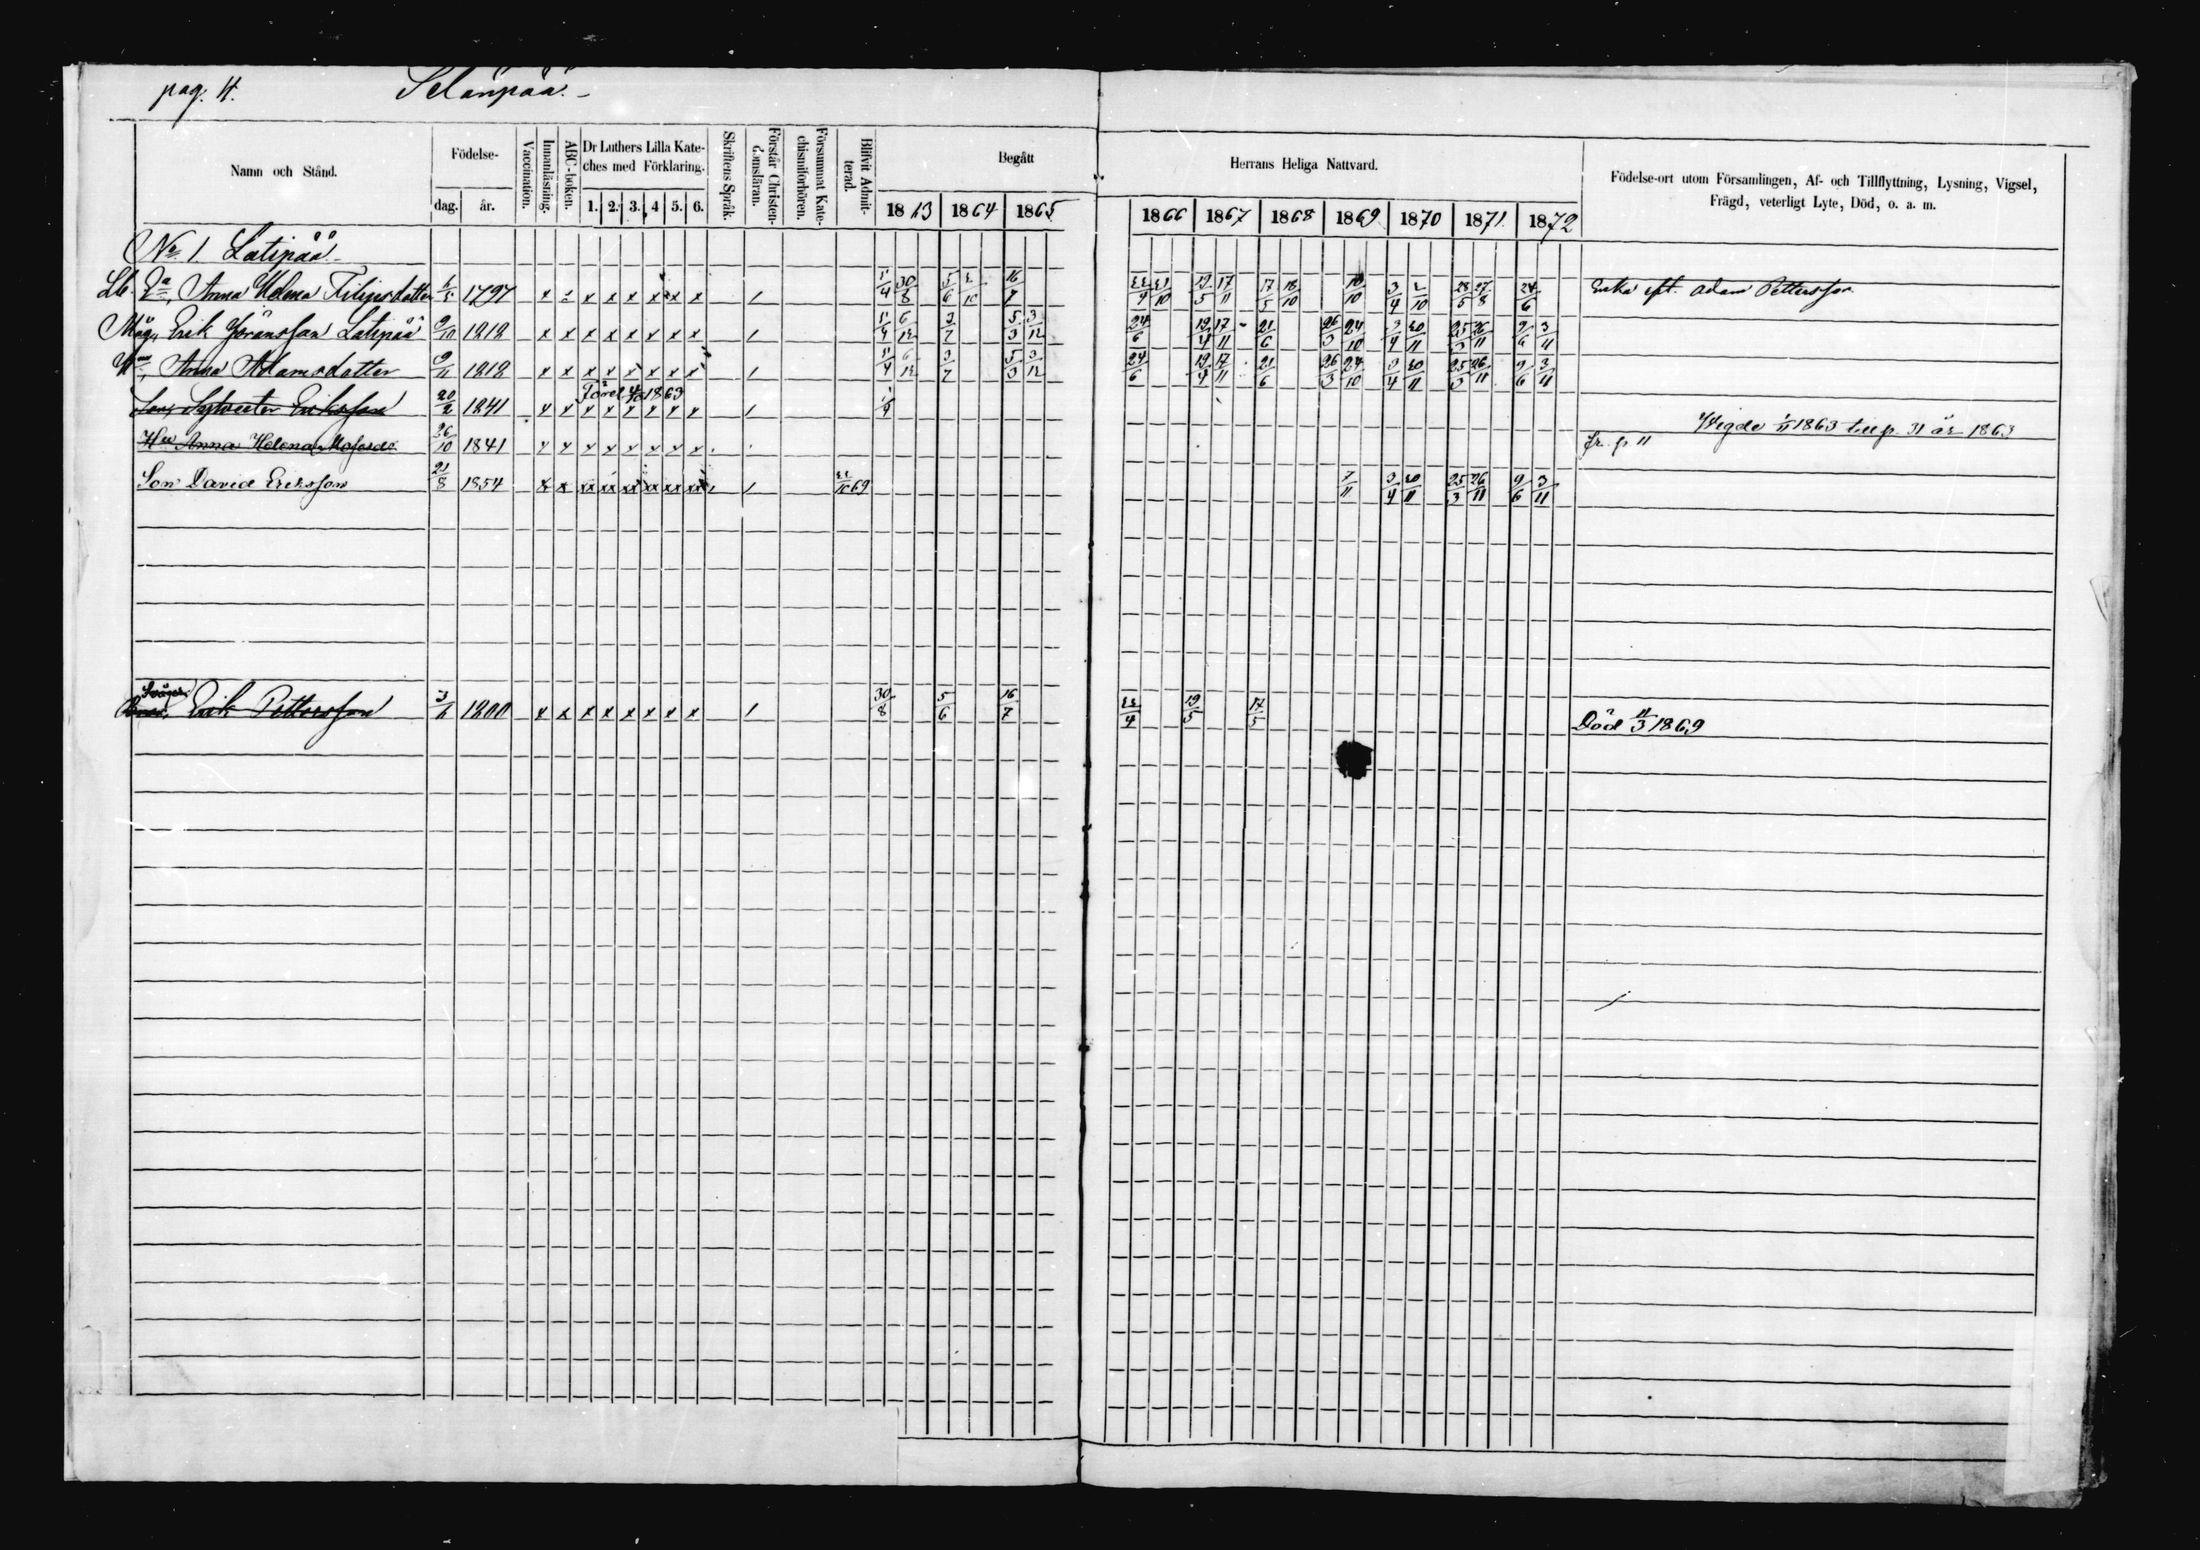 pag. 4. Selänpää.
Namn och Stånd. Födelse- dag. år. Vaccination. Innanläsning. ABC-boken. Dr Luthers Lilla Kateches med Förklaring. 1. 2. 3. 4 5. 6. Skriftens Språk. Förstår Christendomsläran. Försummat Katechismiförhören. Blifvit Admitterad. Begått Herrans Heliga Nattvard. Födelse-ort utom Församlingen, Af- och Tillflyttning, Lysning, Vigsel, Frägd, veterligt Lyte, Död, o. a. m.
1863 1864 1865 1866 1867 1868 1869 1870 1871 1872
No 1. Latipää
Anna Helena Filipsdotter 1797 x x x x x x x 1 30/8 5/6 16/7 19/5 17/11 17/5 18/10 10/10 3/4 28/5 27/8 24/6 Enka eft. Adam Pettersson
Måg, Erik Göransson Latipää 1818 x x x x x x x x 1 3/7 5/3 3/12 24/6 19/4 17/11 21/6 26/3 24/10 3/4 30/11 25/3 26/11 9/6 3/11
Anna Adamsdotter 1818 x x x x x x x x 1 3/7 5/3 3/12 24/6 19/4 17/11 21/6 26/3 24/10 3/4 30/11 25/3 26/11 9/6 3/11
Son, Sylvester Eriksson 20/2 1841 x x x x x x x x 1 1863
Hu Anna Helena Matsdr 26/10 1841 x x x x x x x x fr. p. 11 Vigde 1/11 1863 till p. 31 år 1863
Son David Eriksson 21/8 1854 x x xx xx xx xx xx xx 1 69 7/11 3/4 30/11 25/3 26/11 9/6 3/11
Svåger Erik Pettersson 1800 x x x x x x x x 1 30/8 5/6 16/7 19/5 17/5 Död 11/3 1869